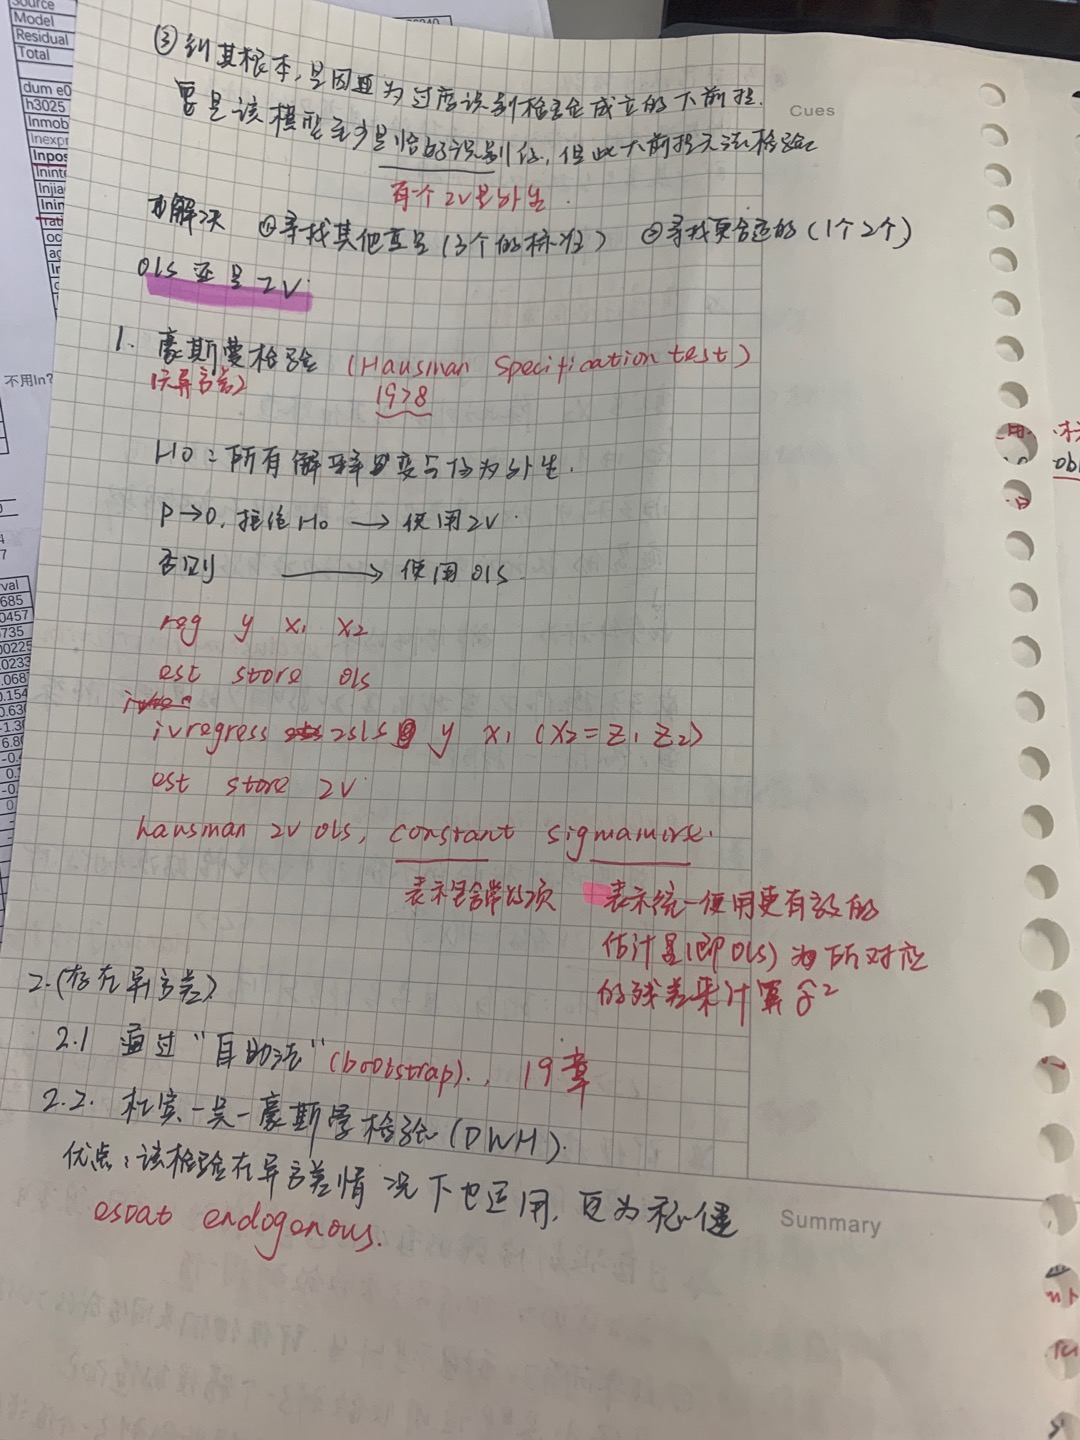 Source
Model
Residual
Total
dum e0
h3025
lnmob
lnexpr
lnpos
lnint
lnjia
lnin
不用ln?
val
685
0457
Cues
③ 到其根本,是因为过度识别检验成立的大前提.
是该模型至少是恰好识别的,但此大前提无法检验
有一个IV是外生.
解决 ①寻找其他变量(3个的标准) ②寻找更合适的(1个2个)
OLS 还是 IV.
1. 豪斯蒙检验 (Hausman Specification test)
(无异方差) 1978
H0:所有解释变量均为外生.
P→0,拒绝H0 → 使用IV.
否则 → 使用OLS.
reg y x1 x2
est store ols
ivregress 2sls y x1 (x2=z1 z2)
est store IV
hausman IV ols, constant sigmamore.
表示包含常数项
表示统一使用更有效的
估计量(即OLS)所对应
的残差来计算σ̂²
2.(存在异方差)
2.1 通过“自助法”(bootstrap).. 19章
2.2. 杜宾-吴-豪斯蒙检验(DWH).
优点:该检验在异方差情况下也适用,更为稳健
estat endogenous.
Summary